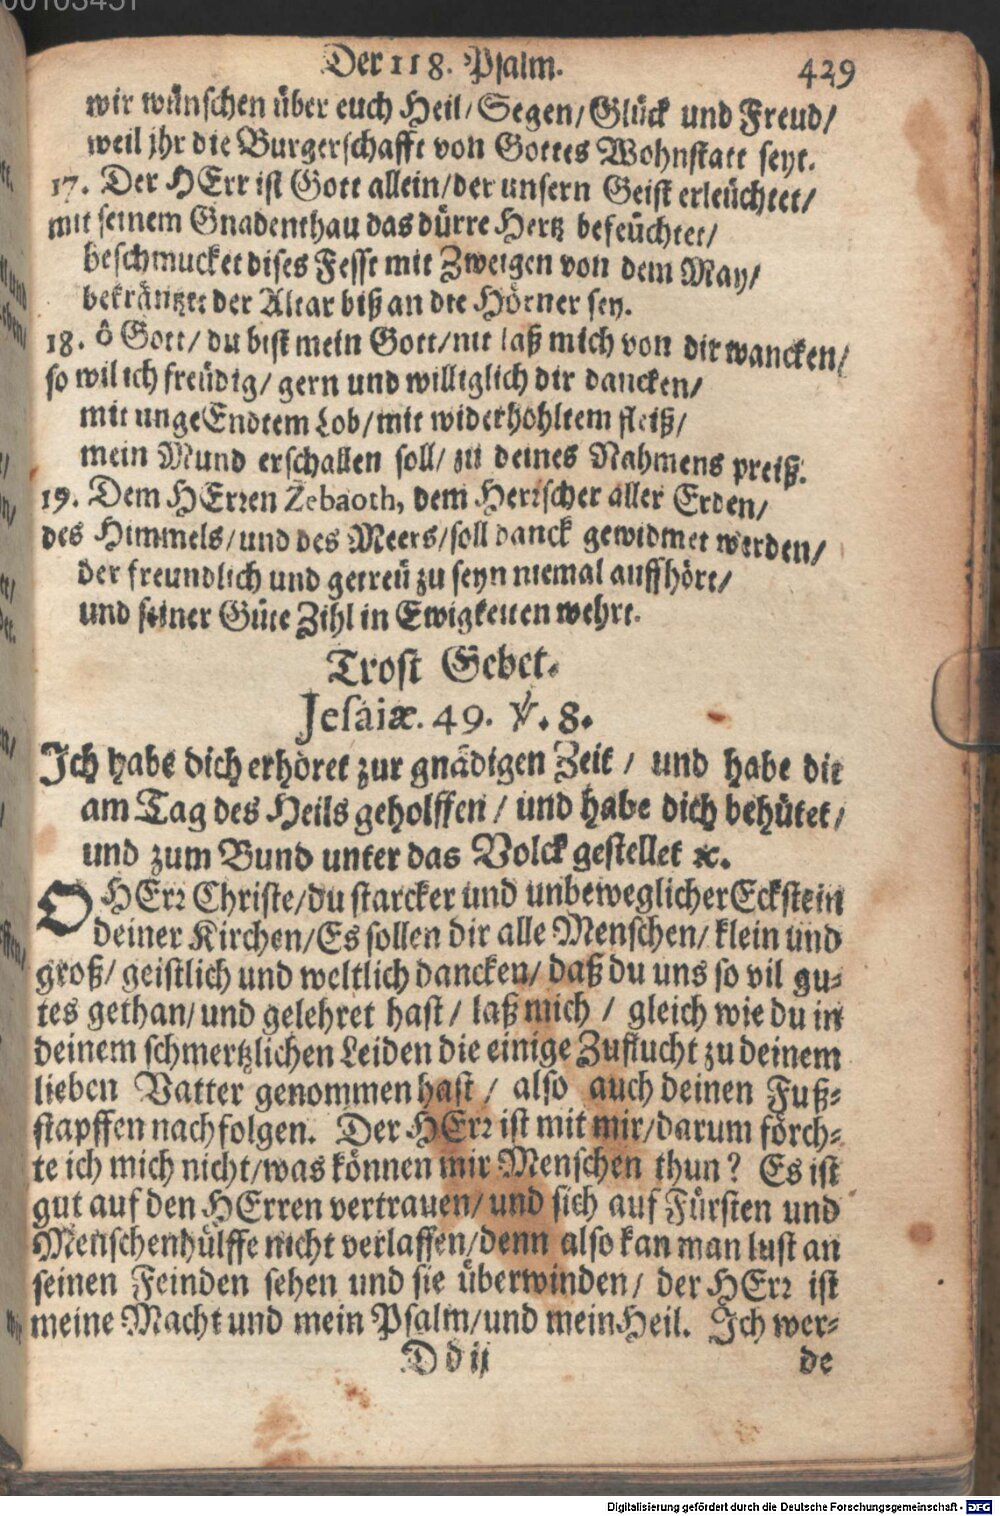 Der 118. Psalm. 429
wir wünschen über euch Heil/ Segen/ Glück und Freud/
weil jhr die Burgerschafft von Gottes Wohnstatt seyt.
17. Der HErr ist Gott allein/ der unsern Geist erleüchtet/
mit seinem Gnadenthau das dürre Hertz befeüchtet/
beschmucket dises Fesst mit Zweigen von dem May/
bekräntzet der Altar biß an die Hörner sey.
18. ô Gott/ du bist mein Gott/ nit laß mich von dir wancken/
so wil ich freüdig/ gern und williglich dir dancken/
mit ungeEndtem Lob/ mit widerhohltem fleiß/
mein Mund erschallen soll/ zu deines Nahmens preiß.
19. Dem HErren Zebaoth, dem Herrscher aller Erden/
des Himmels/ und des Meers/ soll danck gewidmet werden/
der freundlich und getreü zu seyn niemal auffhört/
und seiner Güte Zihl in Ewigkeiten wehrt.
Trost Gebet.
Jesaiæ. 49. ℣. 8.
Ich habe dich erhöret zur gnädigen Zeit / und habe dir
am Tag des Heils geholffen / und habe dich behütet/
und zum Bund unter das Volck gestellet ꝛc.
O HErr Christe/ du starcker und unbeweglicher Eckstein
deiner Kirchen/ Es sollen dir alle Menschen/ klein und
groß/ geistlich und weltlich dancken/ daß du uns so vil gu-
tes gethan/ und gelehret hast/ laß mich / gleich wie du in
deinem schmertzlichen Leiden die einige Zuflucht zu deinem
lieben Vatter genommen hast / also auch deinen Fuß-
stapffen nachfolgen. Der HErr ist mit mir/ darum förch-
te ich mich nicht/ was können mir Menschen thun? Es ist
gut auf den HErren vertrauen/ und sich auf Fürsten und
Menschenhülffe nicht verlassen/ denn also kan man lust an
seinen Feinden sehen und sie überwinden/ der HErr ist
meine Macht und mein Psalm/ und mein Heil. Ich wer-
D d ij de
Digitalisierung gefördert durch die Deutsche Forschungsgemeinschaft - DFG